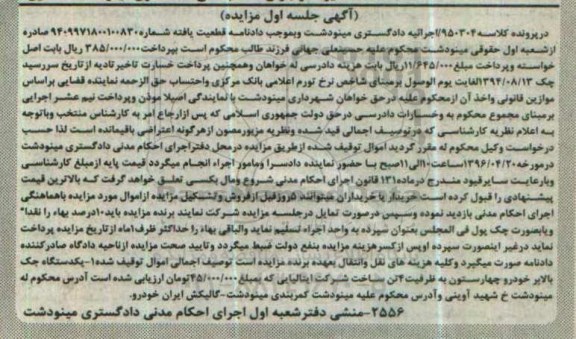 (آگهی جلسه اول مزایده)
درپرونده کلاسه ۹۵۰۳۰۴/اجرائیه دادگستری مینودشت وبموجب دادنامه قطعیت یافته شماره ۹۴۰۹۹۷۱۸۰۰۱۰۰۸۳۰ صادره
ازشعبه اول حقوقی مینودشت محکوم علیه حسینعلی جهانی فرزند طالب محکوم است بپرداخت ۳۸۵/۰۰۰/۰۰۰ ریال بابت اصل
خواسته وپرداخت مبلغ ۱۱/۶۴۵/۰۰۰ریال بابت هزینه دادرسی له خواهان وهمچنین پرداخت خسارت تاخیر تادیه از تاریخ سررسید
چک ۱۳۹۴/۰۸/۱۳لغایت یوم الوصول برمبنای شاخص نرخ تورم اعلامی بانک مرکزی واحتساب حق الزحمه نماینده قضایی براساس
موازین قانونی واخذ آن ازمحکوم علیه درحق خواهان شهرداری مینودشت با نمایندگی اصیلا موذن وپرداخت نیم عشر اجرایی
برمبنای مجموع محکوم به وخسارات دادرسی درحق دولت جمهوری اسلامی که پس ازارجاع امر به کارشناس منتخب وباتوجه
به اعلام نظریه کارشناسی که درتوصیف اجمالی قید شده ونظریه مزبورمصون ازهرگونه اعتراضی باقیمانده است لذا حسب
درخواست وکیل محکوم له مقرر گردید اموال توقیف شده ازطریق مزایده درمحل دفتراجرای احکام مدنی دادگستری مینودشت
درمورخه ۱۳۹۶/۰۴/۲۰ساعت۱۰الی۱۱صبح با حضور نماینده دادسرا ومامور اجراء انجام میگردد قیمت پایه ازمبلغ کارشناسی
وبارعایت سایرقیود مندرج درماده۱۳۱ قانون اجرای احکام مدنی شروع ومال بکسی تعلق خواهد گرفت که بالاترین قیمت
پیشنهادی را قبول کرده است خریدار یا خریداران میتوانند ۵روزقبل ازفروش وتشکیل مزایده ازاموال مورد مزایده باهماهنگی
اجرای احکام مدنی بازدید نموده وسپس درصورت تمایل درجلسه مزایده شرکت نمایند برنده مزایده باید۱۰درصد بهاء را نقدا"
وبابصورت چک پول فی المجلس بعنوان سپرده به واحد اجراء تسلیم نماید والباقی بهاء را حداکثر ظرف۱ماه ازتاریخ مزایده پرداخت
نماید درغیر اینصورت سپرده اوپس ازکسرهزینه مزایده بنفع دولت ضبط میگردد وتایید صحت مزایده ازناحیه دادگاه صادرکننده
دادنامه صورت میگیرد وکلیه هزینه های نقل وانتقال بعهده برنده مزایده است توصیف اجمالی اموال توقیف شده۱-یکدستگاه جک
بالابر خودرو چهارستون به ظرفیت۴تن ساخت شرکت ایتالیایی که بمبلغ ۴۵/۰۰۰/۰۰۰تومان ارزیابی شده است آدرس محکوم له
مینودشت خ شهید آوینی وآدرس محکوم علیه مینودشت کمربندی مینودشت-گالیکش ایران خودرو.
۲۵۵۶-منشی دفترشعبه اول اجرای احکام مدنی دادگستری مینودشت